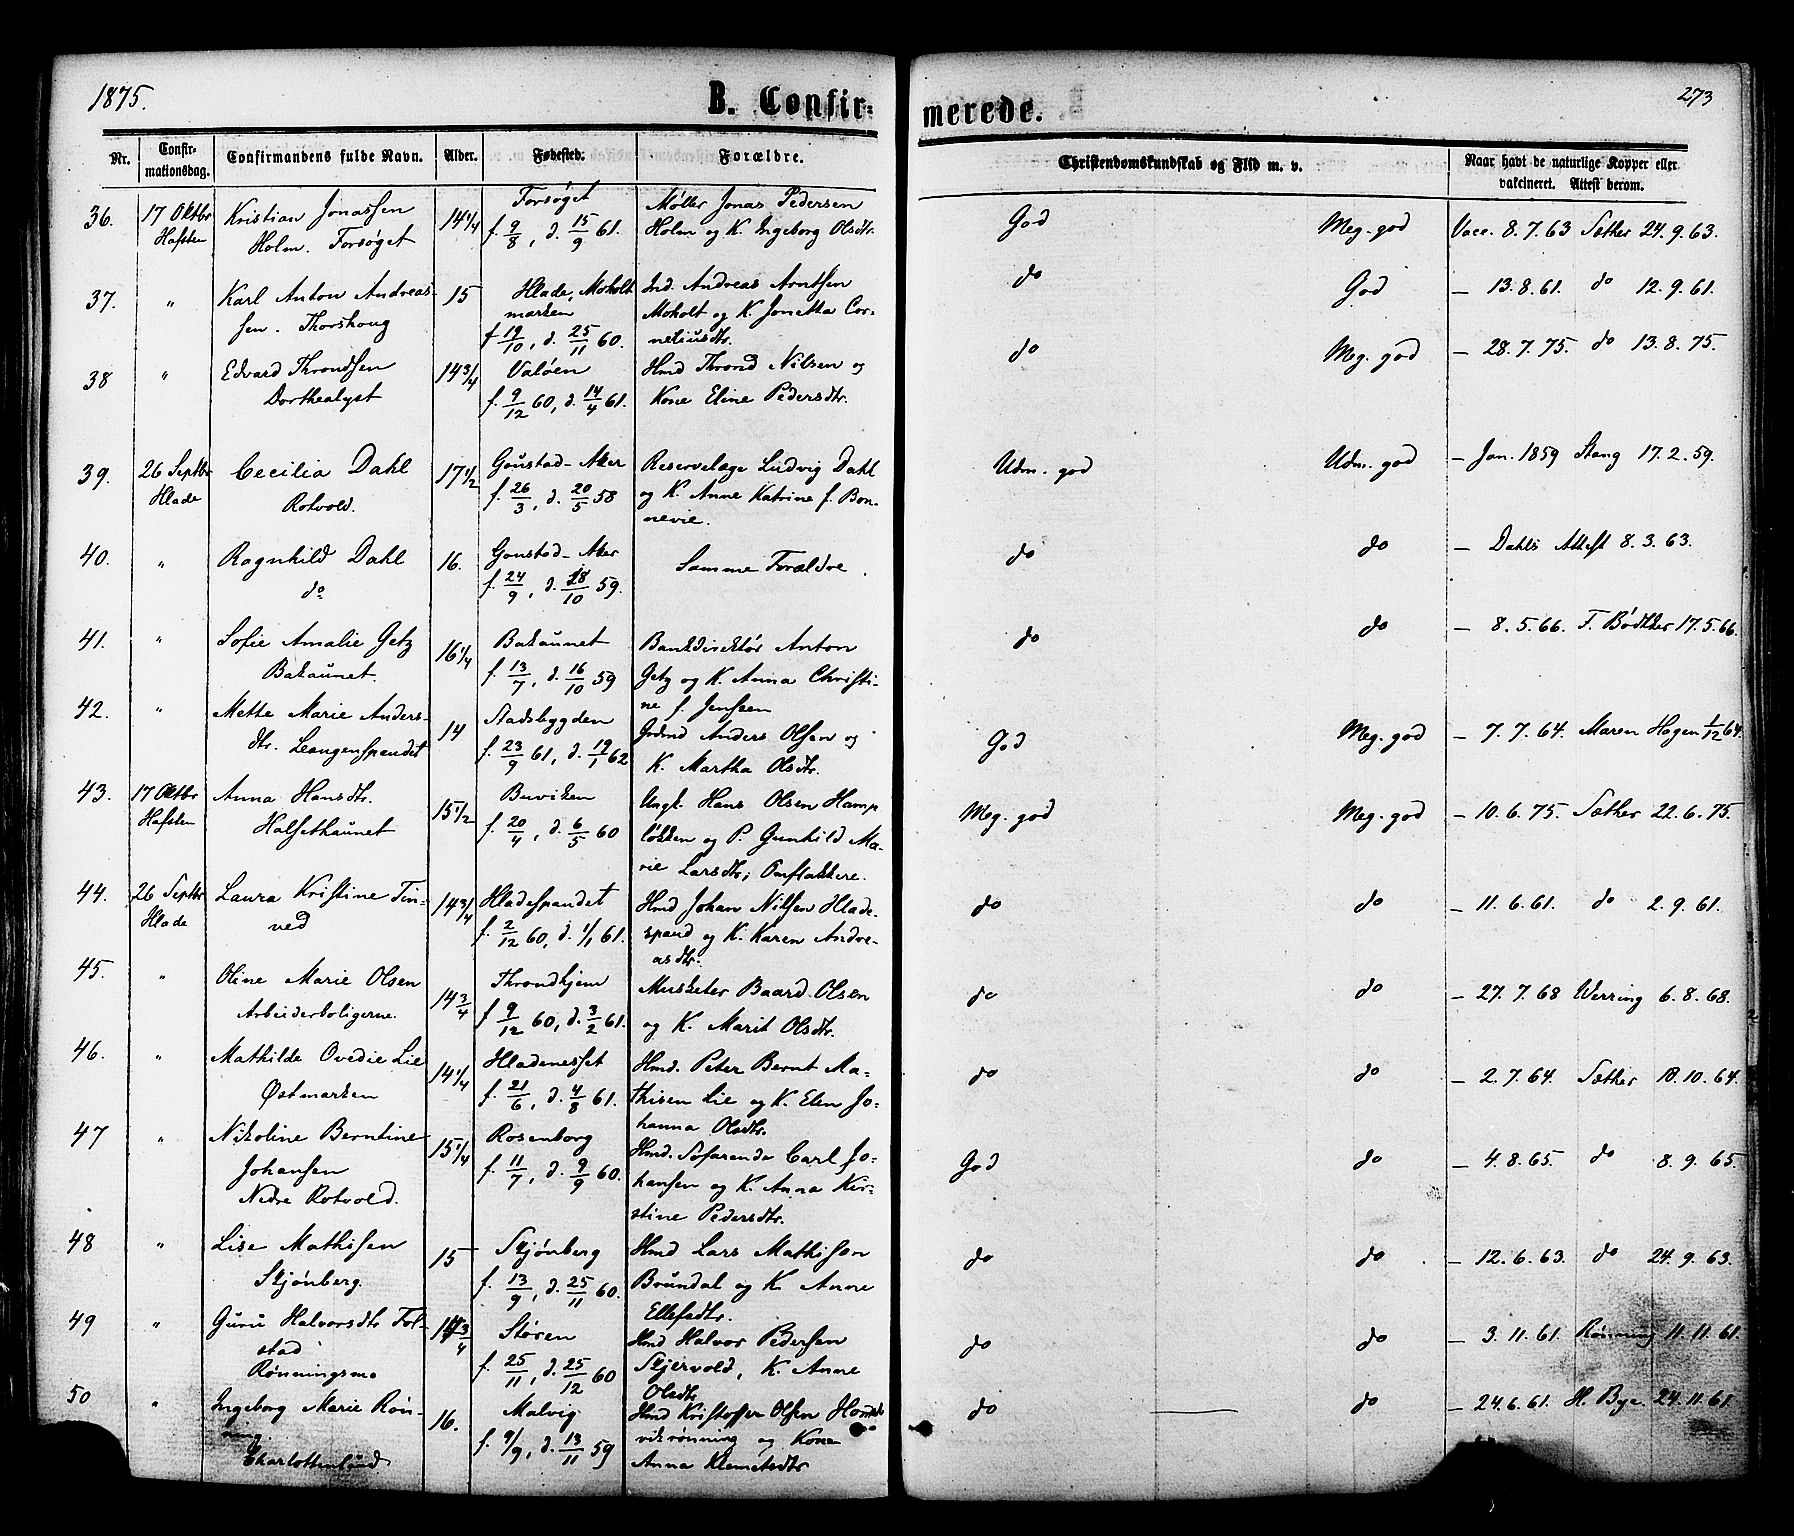 1875.
B. Confir-
merede.
273
Nr.
Confir-
mationsdag.
Confirmandens fulde Navn.
Alder.
Fødested.
Forældre.
Christendomskundskab og Flid m. v.
Naar havt de naturlige Kopper eller
vakcineret. Attest derom.
36. 17 Oktbr Kristian Jonassen 14 1/4 Forsøget Møller Jonas Pedersen God Meg. god Vacc. 8.7.63 Sæther 24.9.63.
Hafsten Holm. Forsøget f. 9/8, d. 15/9 61. Holm og K. Ingeborg Olsdtr.
37. " Karl Anton Andreas- 15 Hlade, Moholt Ind. Andreas Arntsen do God — 13.8.61. do 12.9.61.
sen. Thorshoug marken Moholt og K. Jonetta Cor-
f 19/10, d. 25/11 60. neliusdtr.
38 " Edvard Throndsen 14 3/4 Valøen Hmd Thrond Nilsen og do Meg. god — 28.7.75. do 13.8.75.
Dorthealyst f. 9/12 60, d. 14/4 61. Kone Eline Pedersdtr.
39. 26 Septbr Cecilia Dahl 17 1/2 Goustad-Aker Reservelæge Ludvig Dahl Udm. god Udm. god — Jan. 1859 Stang 17.2.59.
Hlade Rotvold. f. 26/3, d. 20/5 58 og K. Anne Katrine f. Bon-
nevie.
40. " Ragnhild Dahl 16. Goustad-Aker Samme Forældre. do do — Dahls Attest 8.3.63.
do f. 24/9, d. 28/10 59.
41. " Sofie Amalie Getz 16 1/4 Bakaunet Bankdirektør Anton do do — 8.5.66. F. Bødtker 17.5.66.
Bakaunet. f. 13/7, d. 16/10 59 Getz og K. Anna Christi-
ne f. Jenssen
42. " Mette Marie Anders- 14 Stadsbygden Grdmd Anders Olsen og God Meg. god — 7.7.64. Maren Hagen 1/12 64.
dtr. Leangenspandet f. 23/9 61, d. 19/1 62 K. Martha Olsdtr.
43. 17 Oktbr Anna Hansdtr. 15 1/2 Buviken Ungk. Hans Olsen Hamp Meg. god Meg. god — 10.6.75. Sæther 22.6.75.
Hafsten Halsethaunet f. 20/4, d. 6/5 60 løkken og P. Gunhild Ma-
rie Larsdtr; Omflakkere.
44. 26 Septbr Laura Kristine Tin- 14 3/4 Hladespandet Hmd Johan Nilsen Hlade- do do — 11.6.61. do 2.9.61.
Hlade ved f. 2/12 60, d. 1/1 61. spand og K. Karen Andre-
asdtr.
45. " Oline Marie Olsen 14 3/4 Throndhjem Musketer Baard Olsen do do — 27.7.68 Werring 6.8.68.
Arbeiderboligerne. f 9/12 60, d. 3/2 61. og K. Marit Olsdtr.
46. " Mathilde Ovedie Lie 14 1/4 Hladenesset Hmd. Peter Bernt Ma- do do — 2.7.64. Sæther 18.10.64.
Østmarken f. 21/6, d. 4/8 61. thisen Lie og K. Elen Jo-
hanna Olsdtr.
47 " Nikoline Berntine 15 1/4 Rosenborg Hmd. Sofarende Carl Jo- God do — 4.8.65. do 8.9.65.
Johansen f. 11/7, d. 9/9 60. hansen og K. Anna Kir-
Nedre Rotvold. stine Pedersdtr.
48 " Lise Mathissen 15 Skjønberg Hmd Lars Mathisen do do — 12.6.63. do 24.9.63.
Skjønberg. f. 13/9, d. 25/11 60. Brundal og K. Anne
Ellefsdtr.
49 " Guru Halvorsdtr Fol- 14 3/4 Støren Hmd Halvor Pedersen do do — 3.11.61. Rønning 11.11.61.
stad f. 25/11, d. 25/12 60 Skjervold, K. Anne
Rønningsmo Olsdtr
50 " Ingeborg Marie Røn- 16. Malvig Hmd Kristoffer Olsen do do — 24.6.61. H. Bye. 24.11.61.
ning. f. 9/9, d. 13/11 59 vikrønning og Kone
Charlottenlund Anna Klemetsdtr